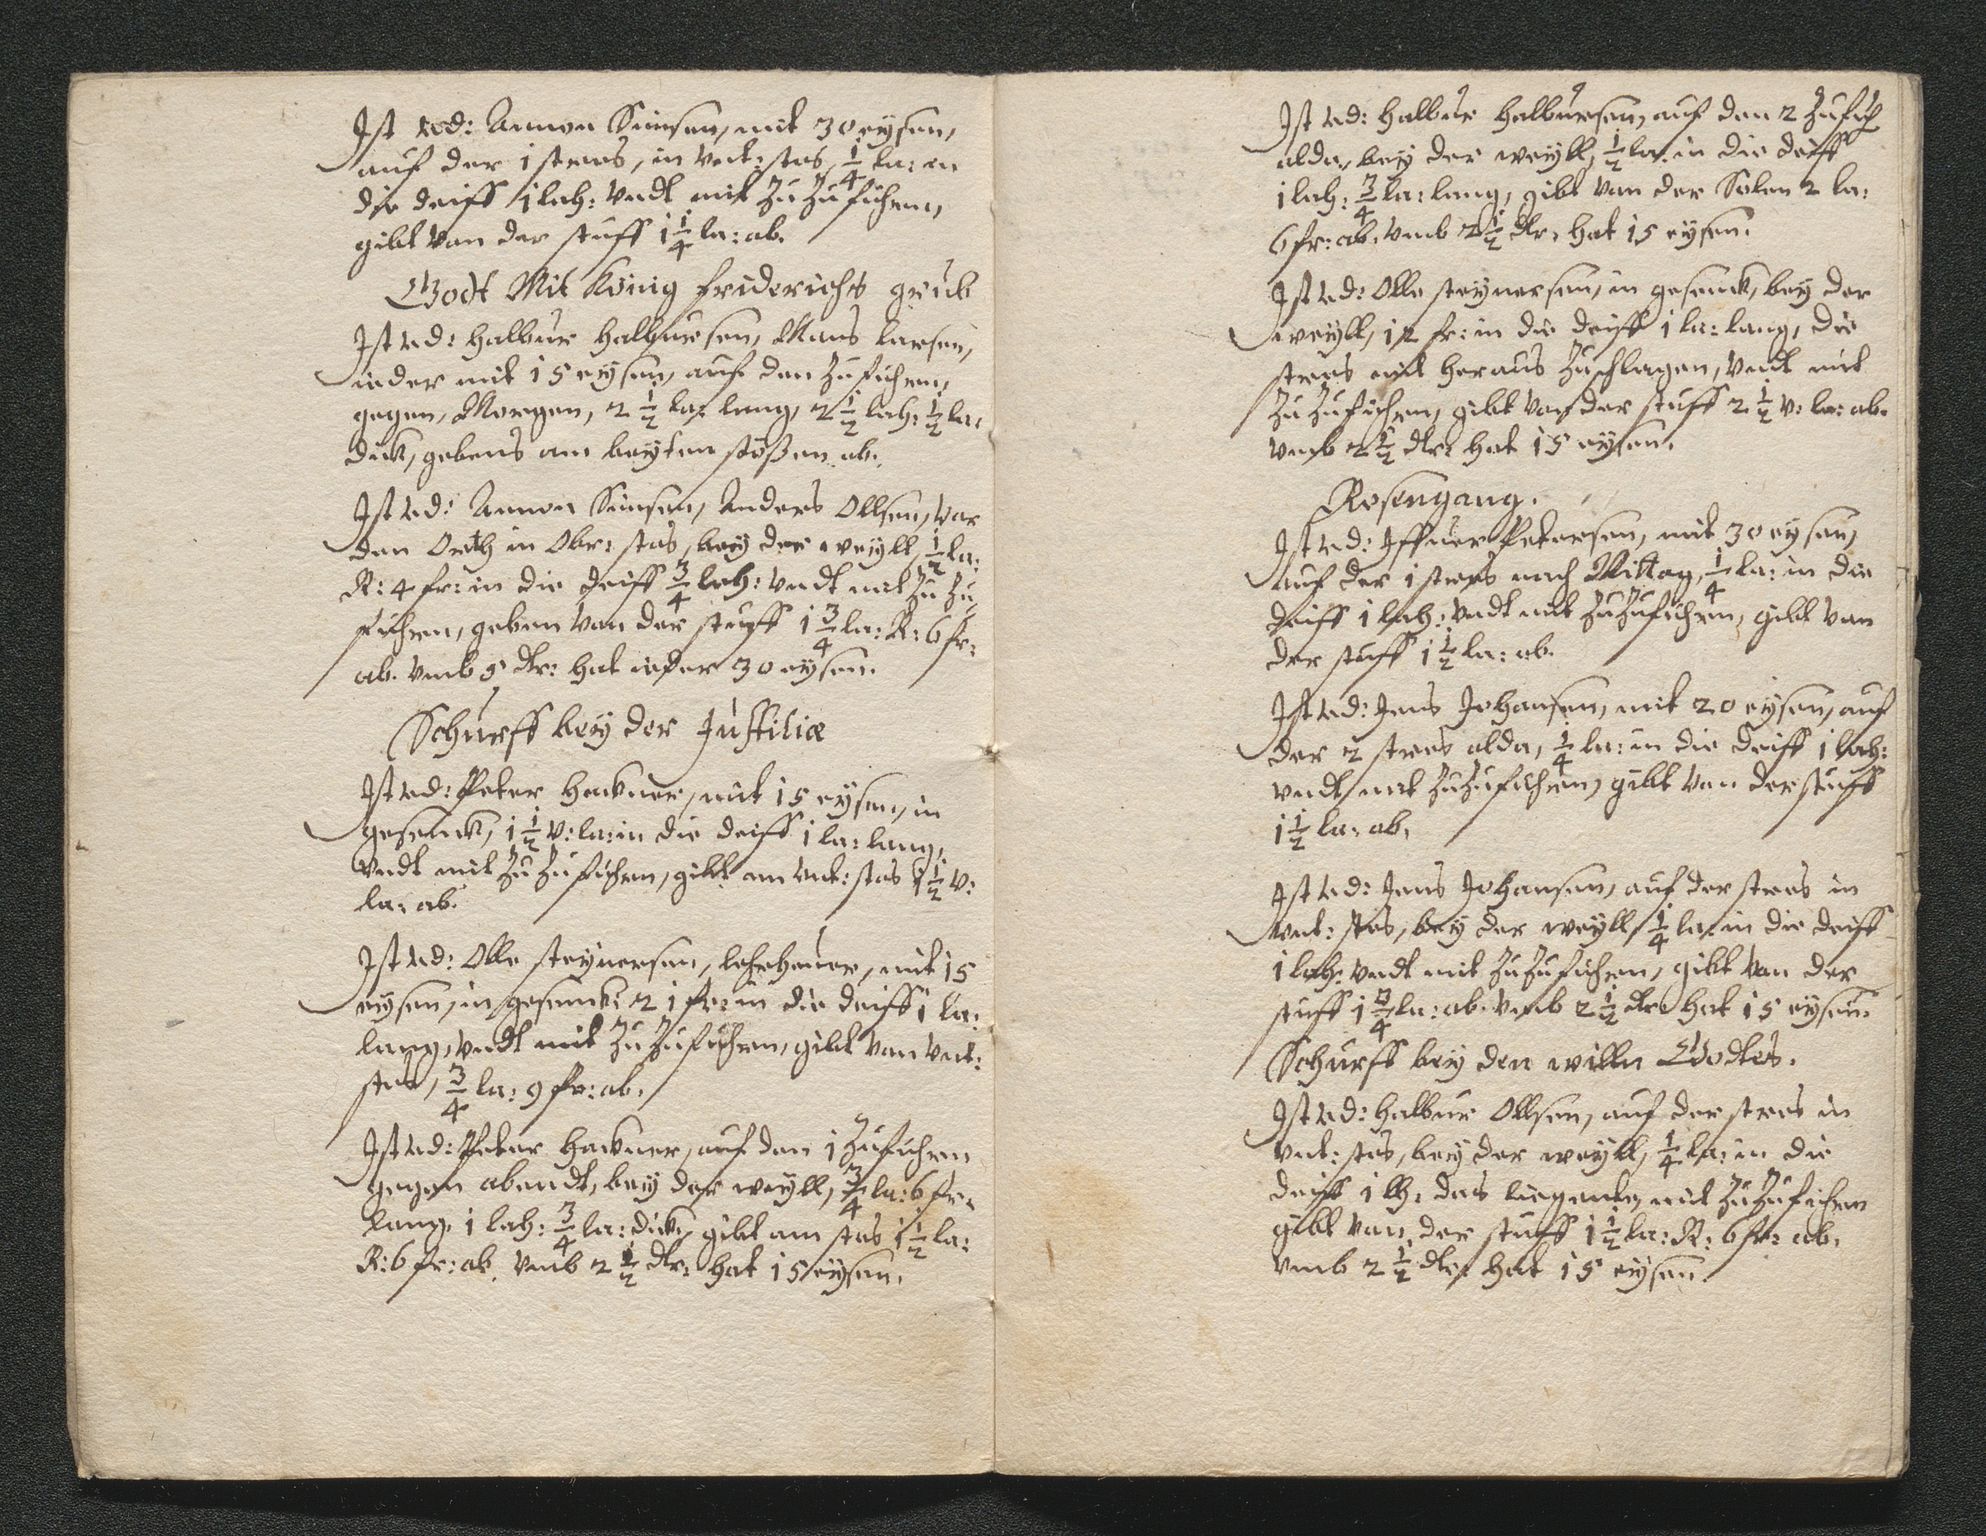 Ist ved: Amon Simsen, mit 30 eysen,
auf der 1 stras, in vnt: stos, 1/4 la: in
die deiff 1 lah: vndt mit Zu Zufuhren,
gibt van der stuff 1 1/4 la: ab.
Godt Mit König friderichs grub
Ist ved: halbur halbursen, Mans larsen,
ieder mit 15 eysen, auf den Zufuhren,
gegen, Morgen, 2 1/2 la: lang, 2 1/2 lah: 1/2 la:
dick, gebens am beyten stößen ab.
Ist ved: Amon Simsen, Anders Ollsen, var
den Orth in Obr: stos, bey der weyll, 1/2 la:
R: 4 fr: in die deiff 3/4 lah: vndt mit Zu Zu
fuhren, geben van der stuff 1 3/4 la: R: 6 fr:
ab. vmb 5 dlr: hat ieder 30 eysen.
Schurff bey der Justiliæ
Ist ved: Peter hackner, mit 15 eysen, in
gesenck, 1 1/2 v: la: in die deiff 1 la: lang,
vndt mit Zu Zufuhren, gibt am vnt: stos 1 1/2 v:
la: ab.
Ist ved: Olle steynersen, lehrheuer, mit 15
eysen, in gesenck: 2 1 fr: in die deiff 1 la:
lang, vndt mit Zu Zufuhren, gibt van vnt:
stos, 3/4 la: 9 fr: ab.
Ist ved: Peter hackner, auf den 1 Zufuhren
gegen abendt, bey der weyll, 3/4 la: 6 fr:
lang, 1 lah: 3/4 la: dick, gibt am stos 1 1/2 la:
R: 6 fr: ab, vmb 2 1/2 dlr: hat 15 eysen.
Ist ved: halbur halbursen, auf den 2 Zufuh
alda, bey der weyll, 1/2 la: in die deiff
1 lah: 3/4 la: lang, gibt van der Solen 2 la:
6 fr: ab. vmb 2 1/2 dlr, hat 15 eysen.
Ist ved: Olle steynersen, in gesenck, bey der
weyll, 12 fr: in die deiff 1 la: lang, die
stras mit heraus Zuschlagen, vndt mit
Zu Zufuhren, gibt van der stuff 2 1/2 v: la: ab.
vmb 2 1/2 dlr: hat 15 eysen.
Rosengang.
Ist ved: Iffuer Petersen, mit 30 eysen,
auf der 1 stras nach Mittag, 1/4 la: in die
deiff 1 lah: vndt mit Zu Zufuhren, gibt van
der stuff 1 1/2 la: ab.
Ist ved: Jens Johansen, mit 20 eysen, auf
der 2 stras alda, 1/4 la: in die deiff 1 lah:
vndt mit Zu Zufuhren, gibt van der stuff
1 1/2 la: ab.
Ist ved: Jens Johansen, auf der stras in
vnt: stos, bey der weyll, 1/4 la: in die deiff
1 lah: vndt mit Zu Zufuhren, gibt van der
stuff 1 3/4 la: ab. vmb 2 1/2 dlr hat 15 eysen.
Schurff bey den willn Godtes.
Ist ved: halbur Ollsen, auf der stras in
vnt: stos, bey der weyll, 1/4 la: in die
deiff 1 lh: das liegente, mit Zu Zufuhren
gibt van der stuff 1 1/2 la: R: 6 fr: ab,
vmb 2 1/2 dlr: hat 15 eysen.